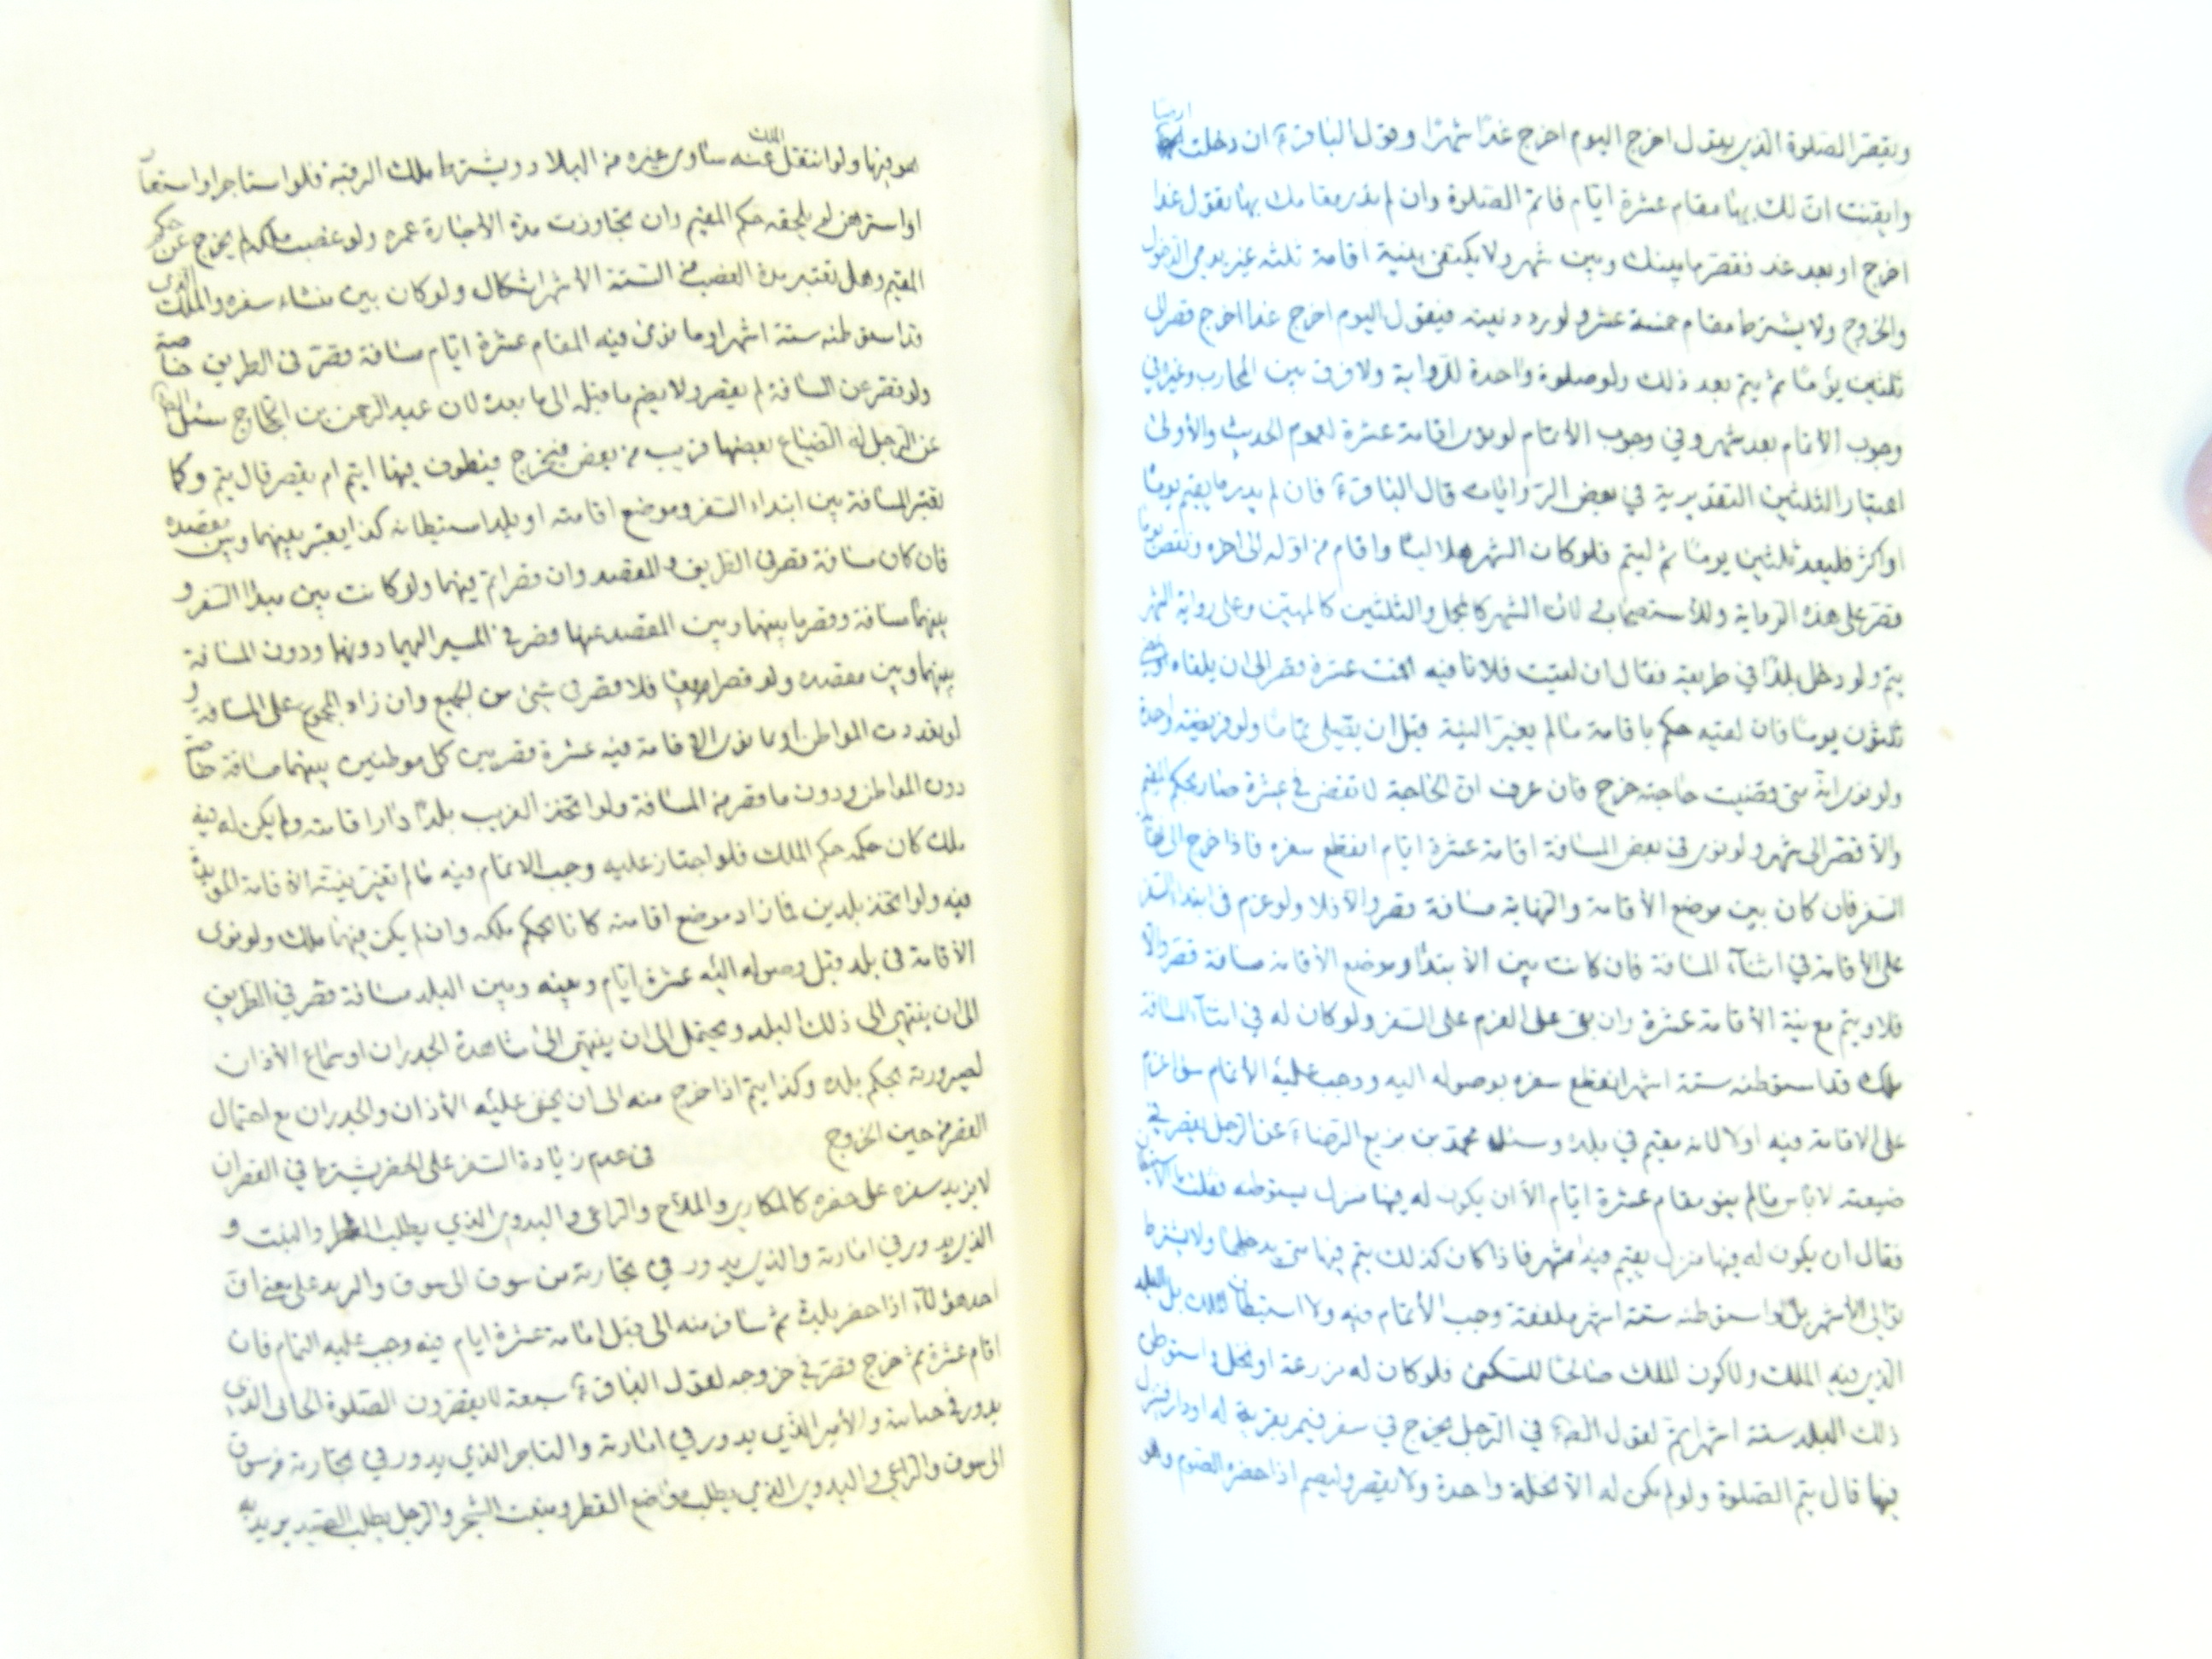 ويقصر الصلوة الذي يقول اخرج اليوم اخرج غدا شهرا وقول الباقر ع ان دخلت ارضا
وايقنت ان لك بها مقام عشرة ايام فاتم الصلوة وان لم تدر مقامك بها تقول غدا
اخرج او بعد غد فقصر ما بينك وبين شهر ولا يكتفى بنية اقامة ثلثه غير يومى الدخول
والخروج ولا يشترط مقام خمسة عشر ولو ردد نيته فيقول اليوم اخرج غدا اخرج قصر الى
ثلثين يوما ثم يتم بعد ذلك ولو صلوة واحدة للرواية ولا فرق بين المحارب وغيره في
وجوب الاتمام بعد شهر وفي وجوب الاتمام لو نوى اقامة عشرة لعموم الحديث والأولى
اعتبار الثلثين التقديرية في بعض الروايات قال الباقر ع فان لم يدر ما يقيم يوما
او اكثر فليعد ثلثين يوما ثم ليتم فلو كان الشهر هلاليا واقام من اوله الى اخره ونقص يوما
قصر على هذه الرواية وللاستصحاب لان الشهر كالمجمل والثلثين كالمبين وعلى رواية الشهر
يتم ولو دخل بلدا في طريقه فقال ان لقيت فلانا فيه اقمت عشرة قصر الى ان يلقاه
ثلثون يوما فان لقيه حكم باقامة ما لم يغير النية قبل ان يصلى تماما ولو فريضة واحدة
ولو نوى انه متى قضيت حاجته خرج فان عرف ان الحاجة لا تقضى في عشرة صار بحكم المقيم
والا قصر الى شهر ولو نوى في بعض المسافة اقامة عشرة ايام انقطع سفره فاذا خرج الى
السفر فان كان بين موضع الأقامة والنهاية مسافة قصر والا فلا ولو عزم في ابتداء السفر
على الاقامة في اثناء المسافة فان كانت بين الأبتداء وموضع الأقامة مسافة قصر والا
فلا ويتم مع نية الأقامة عشرة وان بقى على العزم على السفر ولو كان له في اثناء المسافة
ملك قد استوطنه ستة اشهر انقطع سفره بوصوله اليه ووجب عليه الاتمام سواء عزم
على الاقامة فيه او لا لانه مقيم في بلده وسئل محمد بن بزيع الرضا ع عن الرجل يقصر في
ضيعته لا باس ما لم ينو مقام عشرة ايام الا ان يكون له فيها منزل يستوطنه فقلت ما الاستيطان
فقال ان يكون له فيها منزل يقيم فيه ستة اشهر فاذا كان كذلك يتم فيها متى يدخلها ولا يشترط
توالى الأشهر بل لو استوطنه ستة اشهر ملفقة وجب الأتمام فيه ولا استيطان الملك بل البلد
الذي فيه الملك ولا كون الملك صالحا للسكنى فلو كان له مزرعة او نخل واستوطن
ذلك البلد ستة اشهر اتم لقول الصادق ع في الرجل يخرج في سفر فيمر بقرية له او دار فينزل
فيها قال يتم الصلوة ولو لم يكن له الا نخلة واحدة ولا يقصر وليصم اذا حضره الصوم وهو
فيها ولو انتقل الملك عنه ساوى غيره من البلاد ويشترط ملك الرقبة فلو استاجر او استعار
او استرهن لم يلحقه حكم المقيم وان تجاوزت مدة الاجارة عمره ولو غصب ملكه لم يخرج عن حكم
المقيم وهل تعتبر مدة الغصب من الستة الاشهر اشكال ولو كان بين منشاء سفره والملك الذى
قد استوطنه ستة اشهر او ما نوى فيه المقام عشرة ايام مسافة قصر في الطريق خاصة
ولو قصر عن المسافة لم يقصر ولا يضم ما قبله الى ما بعده لان عبد الرحمن بن الحجاج سئل
عن الرجل له الضياع بعضها قريب من بعض فيخرج فيطوف فيها ايتم ام يقصر قال يتم وكما
تعتبر المسافة بين ابتداء السفر وموضع اقامته او بلد استيطانه كذا يعتبر بينهما وبين مقصده
فان كان مسافة قصر في الطريق والمقصد وان قصر اتم فيهما ولو كانت بين مبدا السفر و
بينهما مسافة وقصر ما بينهما وبين المقصد عنها قصر في المسير اليهما دونهما ودون المسافة
بينهما وبين مقصده ولو قصرا معا فلا قصر في شىء من الجميع وان زاد المجموع على المسافة و
لو تعددت المواطن او ما نوى الاقامة فيه عشرة قصر بين كل موطنين بينهما مسافة خاصة
دون المواطن ودون ما قصر من المسافة ولو اتخذ الغريب بلدا دار اقامته ولم يكن له فيه
ملك كان حكمه حكم الملك فلو اجتاز عليه وجب الاتمام فيه ما لم تغير نيته الاقامة المؤبدة
فيه ولو اتخذ بلدين فما زاد موضع اقامته كانا بحكم ملكه وان لم يكن فيهما ملك ولو نوى
الأقامة في بلد قبل وصوله اليه عشرة ايام وبينه وبين البلد مسافة قصر في الطريق
الى ان ينتهى الى ذلك البلد ويحتمل الى ان ينتهى الى مشاهدة الجدران او سماع الأذان
لصيرورته بحكم بلده وكذا يتم اذا خرج منه الى ان يخفى عليه الأذان والجدران مع احتمال
القصر من حين الخروج في عدم زيادة السفر على الحضر يشترط في القصر ان
لا يزيد سفره على حضره كالمكارى والملاح والراعى والبدوى الذي يطلب القطر والنبت و
الذي يدور في امارته والذي يدور في تجارته من سوق الى سوق والبريد على معنى ان
احد هؤلاء اذا حضر بلده ثم سافر منه الى قبل اقامة عشرة ايام فيه وجب عليه التمام فان
اقام عشرة ثم خرج قصر في خروجه لقول الباقر ع سبعة لا يقصرون الصلوة الجابى الذي
يدور في جبايته والأمير الذي يدور في امارته والتاجر الذي يدور في تجارته من سوق
الى سوق والراعي والبدوي الذي يطلب مواضع القطر ومنبت الشجر والرجل يطلب الصيد يريد به